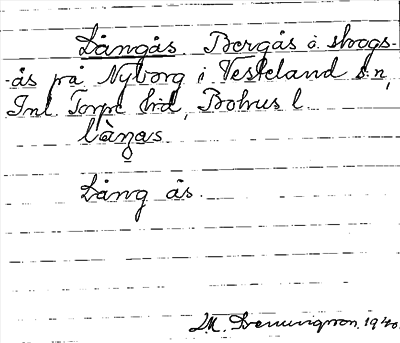 Långås. Bergås o. skogs-
-ås på Nyborg i Vesteland s:n,
Inl. Torpe hd, Bohus l.
làŋas
Lång ås.
1940.